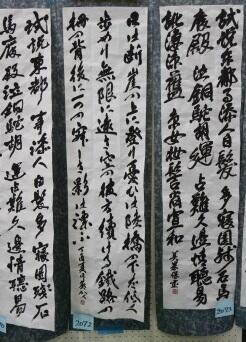 試説東都事添人白髪多寝園残石馬
廃殿泣銅駝胡運占難久邊情聴易
訛凄涼舊京女妝髻尚宣和
日は断崖の上に登り憂ひは陸橋の下を低く
歩めり無限に遠き空の彼方続ける鉄路の
柵の背後に一つの寂しき影は漂ふ
試説東都事添人白髪多寝園残石
馬廃殿泣銅駝胡運占難久邊情聴易
2072
2073